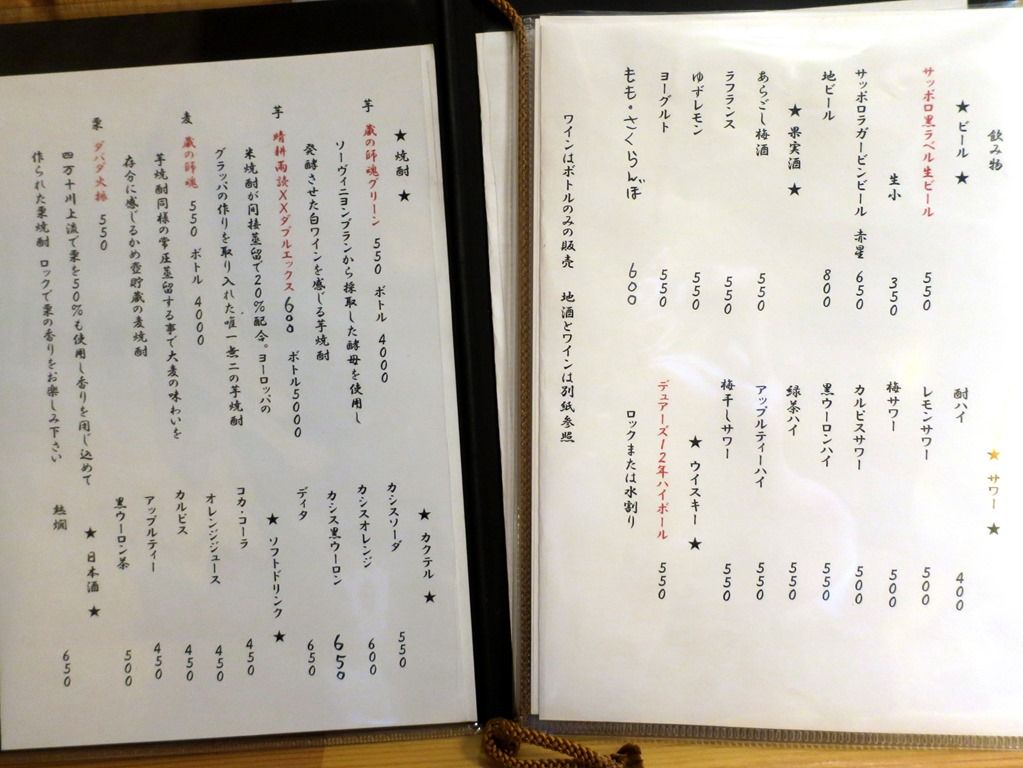 飲み物
★ ビール ★
サッポロ黒ラベル生ビール 550
生小 350
サッポロラガービンビール 赤星 650
地ビール 800
★ 果実酒 ★
あらごし梅酒 550
ラフランス 550
ゆずレモン 550
ヨーグルト 550
もも・さくらんぼ 600
★ サワー ★
酎ハイ 400
レモンサワー 500
梅サワー 500
カルピスサワー 500
黒ウーロンハイ 550
緑茶ハイ 550
アップルティーハイ 550
梅干しサワー 550
★ ウイスキー ★
デュアーズ12年ハイボール 550
ロックまたは水割り
ワインはボトルのみの販売 地酒とワインは別紙参照
★ 焼酎 ★
芋 蔵の師魂グリーン 550 ボトル 4000
ソーヴィニヨンブランから採取した酵母を使用し
発酵させた白ワインを感じる芋焼酎
芋 晴耕雨読XXダブルエックス 600 ボトル5000
米焼酎が間接蒸留で20%配合。ヨーロッパの
グラッパの作りを取り入れた唯一無二の芋焼酎
麦 蔵の師魂 550 ボトル 4000
芋焼酎同様の常圧蒸留する事で大麦の味わいを
存分に感じるかめ壺貯蔵の麦焼酎
栗 ダバダ火振 550
四万十川上流で栗を50%も使用し香りを閉じ込めて
作られた栗焼酎 ロックで栗の香りをお楽しみ下さい
★ カクテル ★
カシスソーダ 550
カシスオレンジ 600
カシス黒ウーロン 650
ディタ 650
★ ソフトドリンク ★
コカ・コーラ 450
オレンジジュース 450
カルピス 450
アップルティー 450
黒ウーロン茶 500
★ 日本酒 ★
熱燗 650